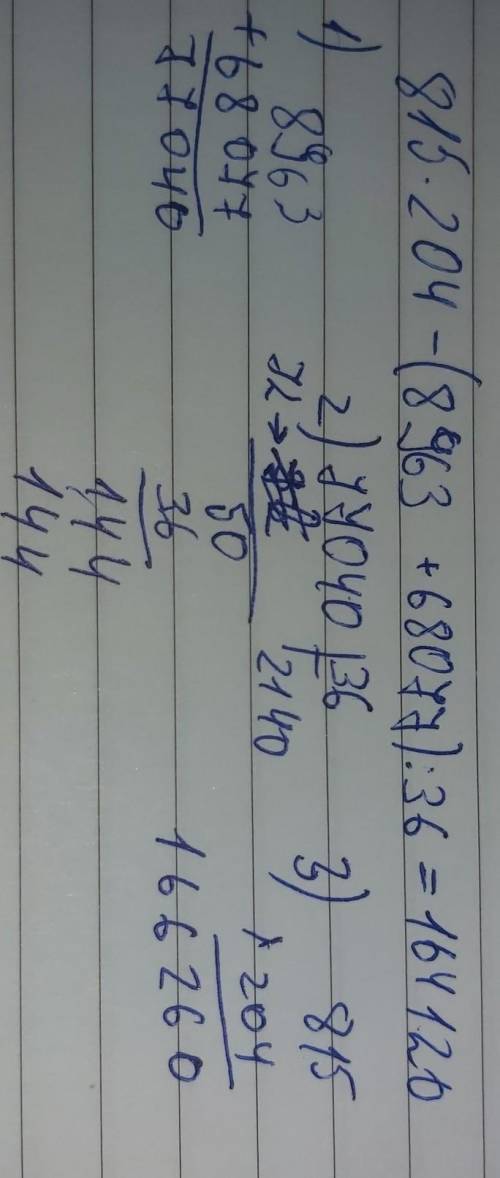 815 · 204 - (8963 + 68077) : 36 = 164120
1) 8963
+68077
77040
2) 77040 | 36
72 → 2140
50
36
144
144
3) 815
× 204
166260